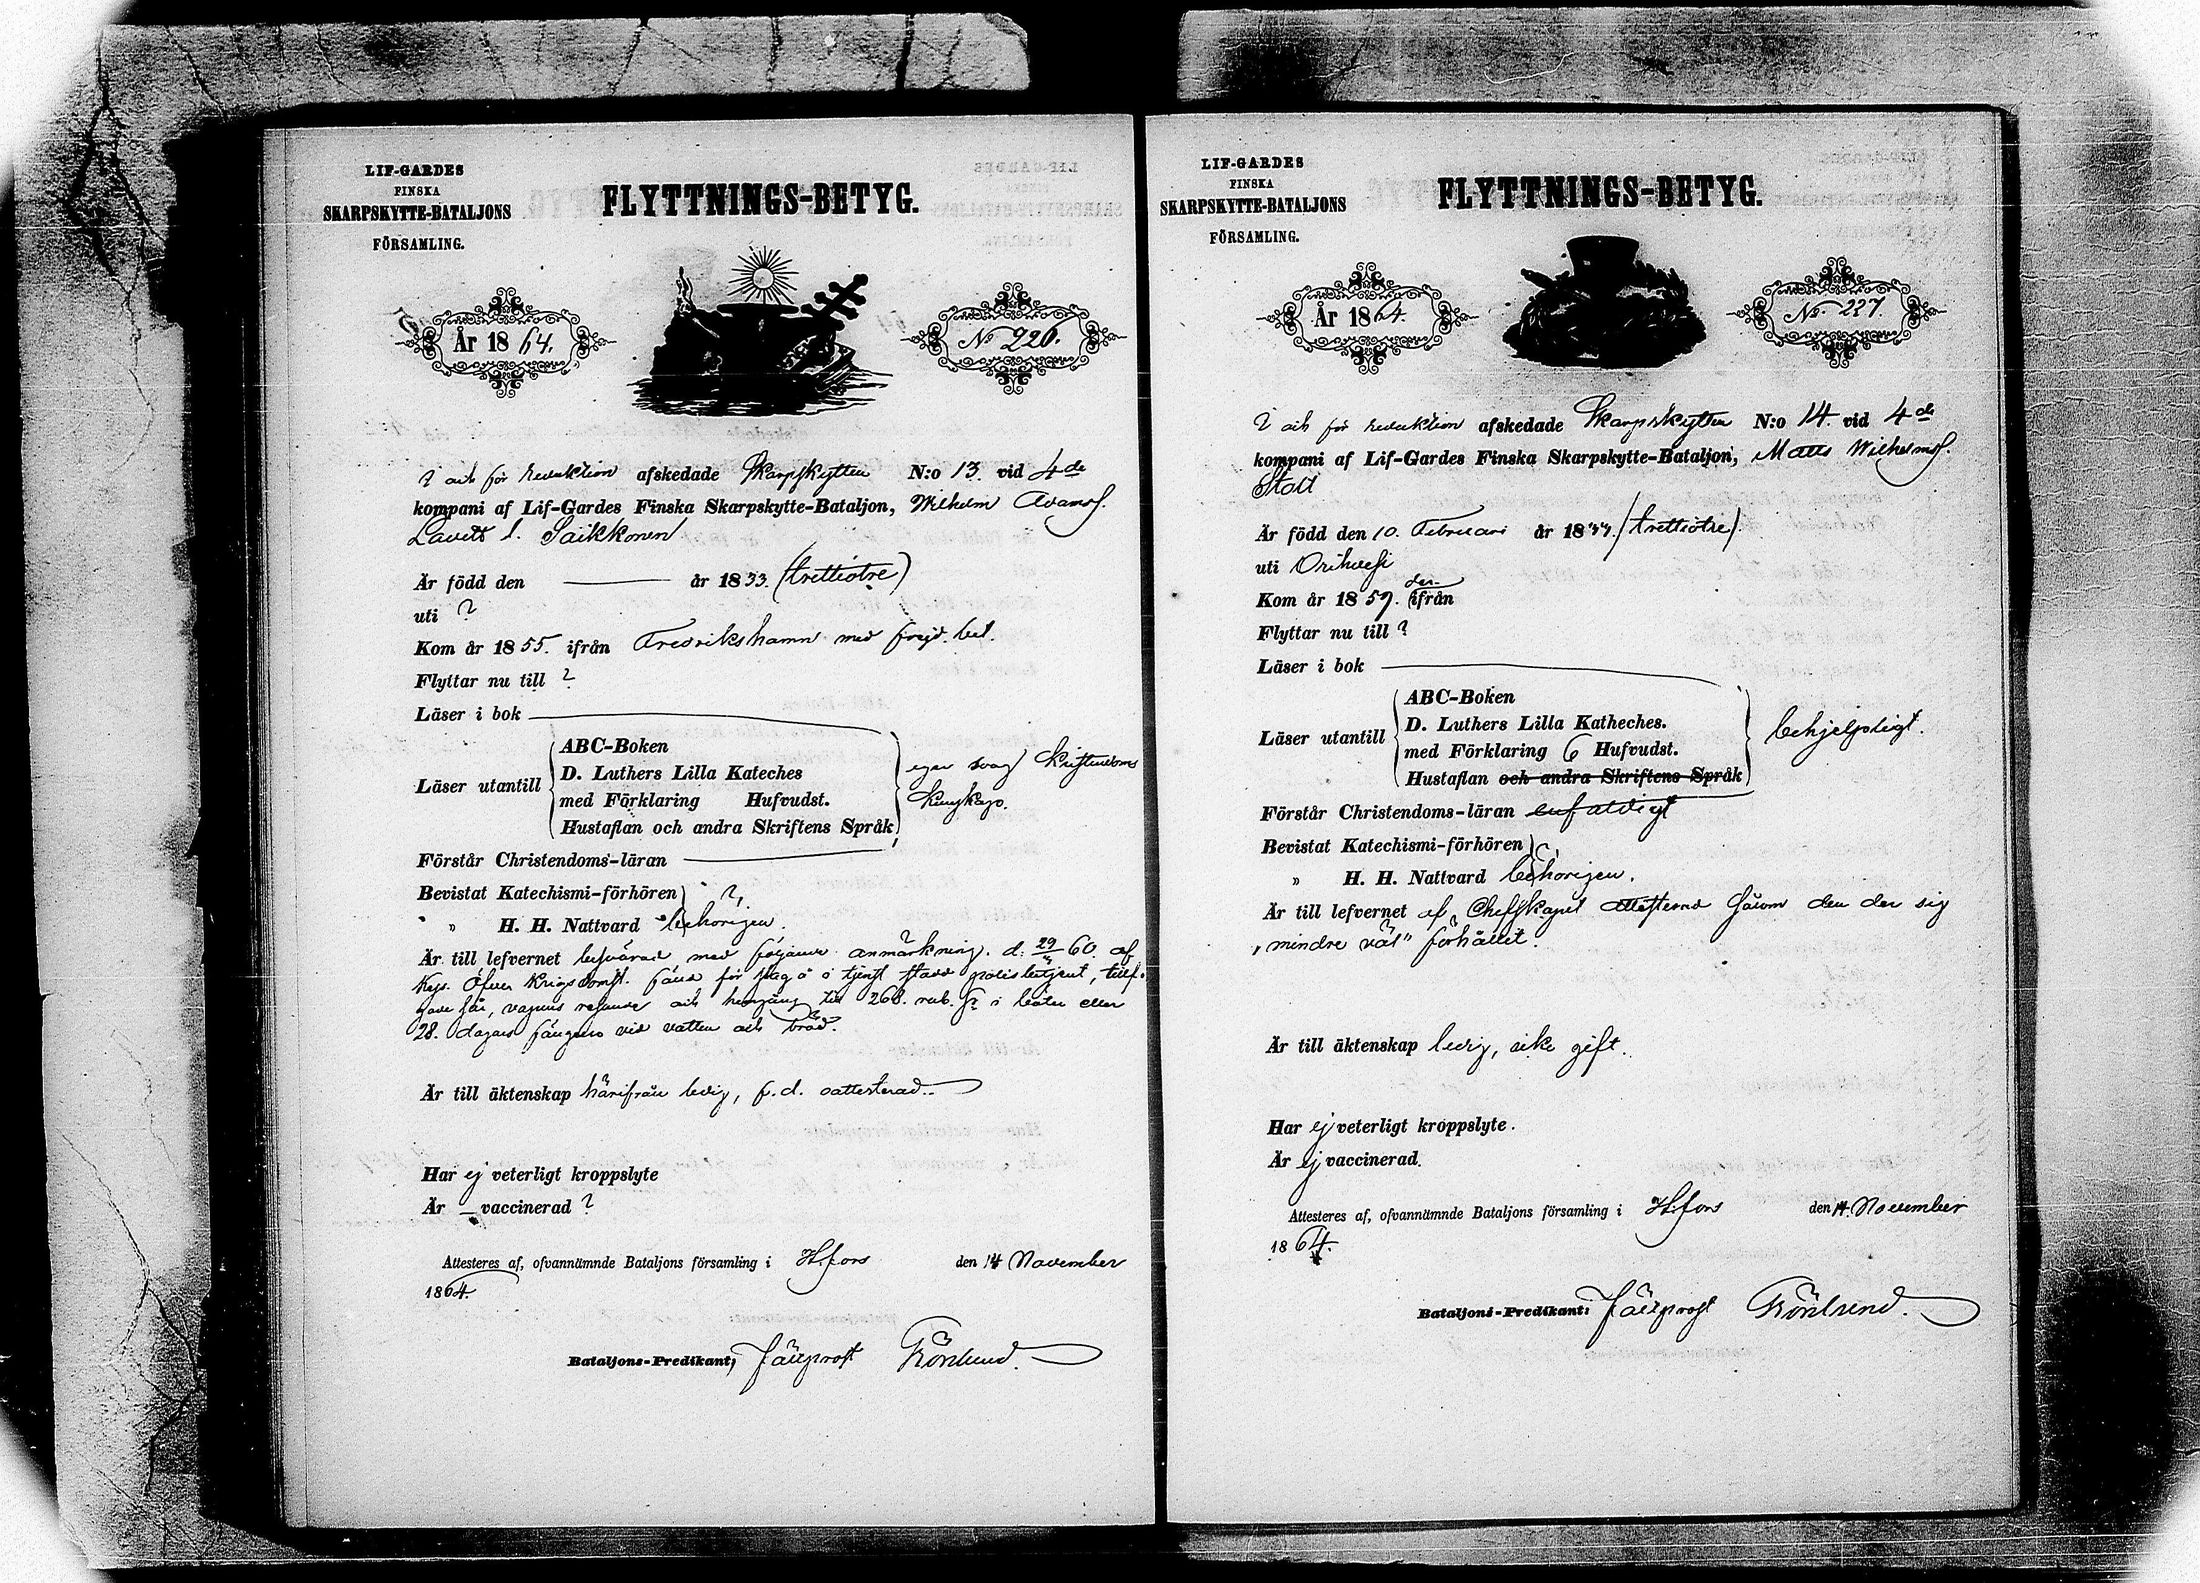 LIF-GARDES
FINSKA
SKARPSKYTTE-BATALJONS
FÖRSAMLING.
FLYTTNINGS-BETYG.
År 1864.
No 226.
afskedade Skarpskytten N:o 13. vid 4de
kompani af Lif-Gardes Finska Skarpskytte-Bataljon, Wilhelm Adamsf.
Saikkonen
Är född den — år 1833. (trettiotre)
uti ?
Kom år 1855. ifrån Fredrikshamn med frejd. bet.
Flyttar nu till ?
Läser i bok
Läser utantill
ABC-Boken
D. Luthers Lilla Kateches
med Förklaring Hufvudst.
Hustaflan och andra Skriftens Språk
eger svag Kristendoms
kunskap.
Förstår Christendoms-läran
Bevistat Katechismi-förhören ?
" H. H. Nattvard behörigen.
Är till lefvernet med följande anmärkning. d. 29 60. af
Krigsdomst. för
268. rub. i böter eller
28. dagars fängelse vid vatten och bröd.
Är till äktenskap härifrån ledig, f.d. oattesterad.
Har ej veterligt kroppslyte
Är — vaccinerad ?
Attesteres af, ofvannämnde Bataljons församling i H:fors den 14 November
1864.
Bataljons-Predikant, Fältprost Grönlund.
LIF-GARDES
FINSKA
SKARPSKYTTE-BATALJONS
FÖRSAMLING.
FLYTTNINGS-BETYG.
År 1864.
No. 227.
afskedade Skarpskytten N:o 14. vid 4de
kompani af Lif-Gardes Finska Skarpskytte-Bataljon, Matts Wilhelmsf.
Stolt
Är född den 10. Februari år 1833. (trettiotre).
uti Orihvesi
Kom år 1857. ifrån
Flyttar nu till ?
Läser i bok
Läser utantill
ABC-Boken
D. Luthers Lilla Katheches.
med Förklaring 6 Hufvudst.
Hustaflan och andra Skriftens Språk
behjelpligt.
Förstår Christendoms-läran enfaldigt
Bevistat Katechismi-förhören
" H. H. Nattvard behörigen.
Är till lefvernet af Chefskapet attesterad såsom den der sig
"mindre väl" förhållit.
Är till äktenskap ledig, icke gift.
Har ej veterligt kroppslyte.
Är ej vaccinerad.
Attesteres af, ofvannämnde Bataljons församling i H:fors den 14. November
1864.
Bataljons-Predikant: Fältprost Grönlund.